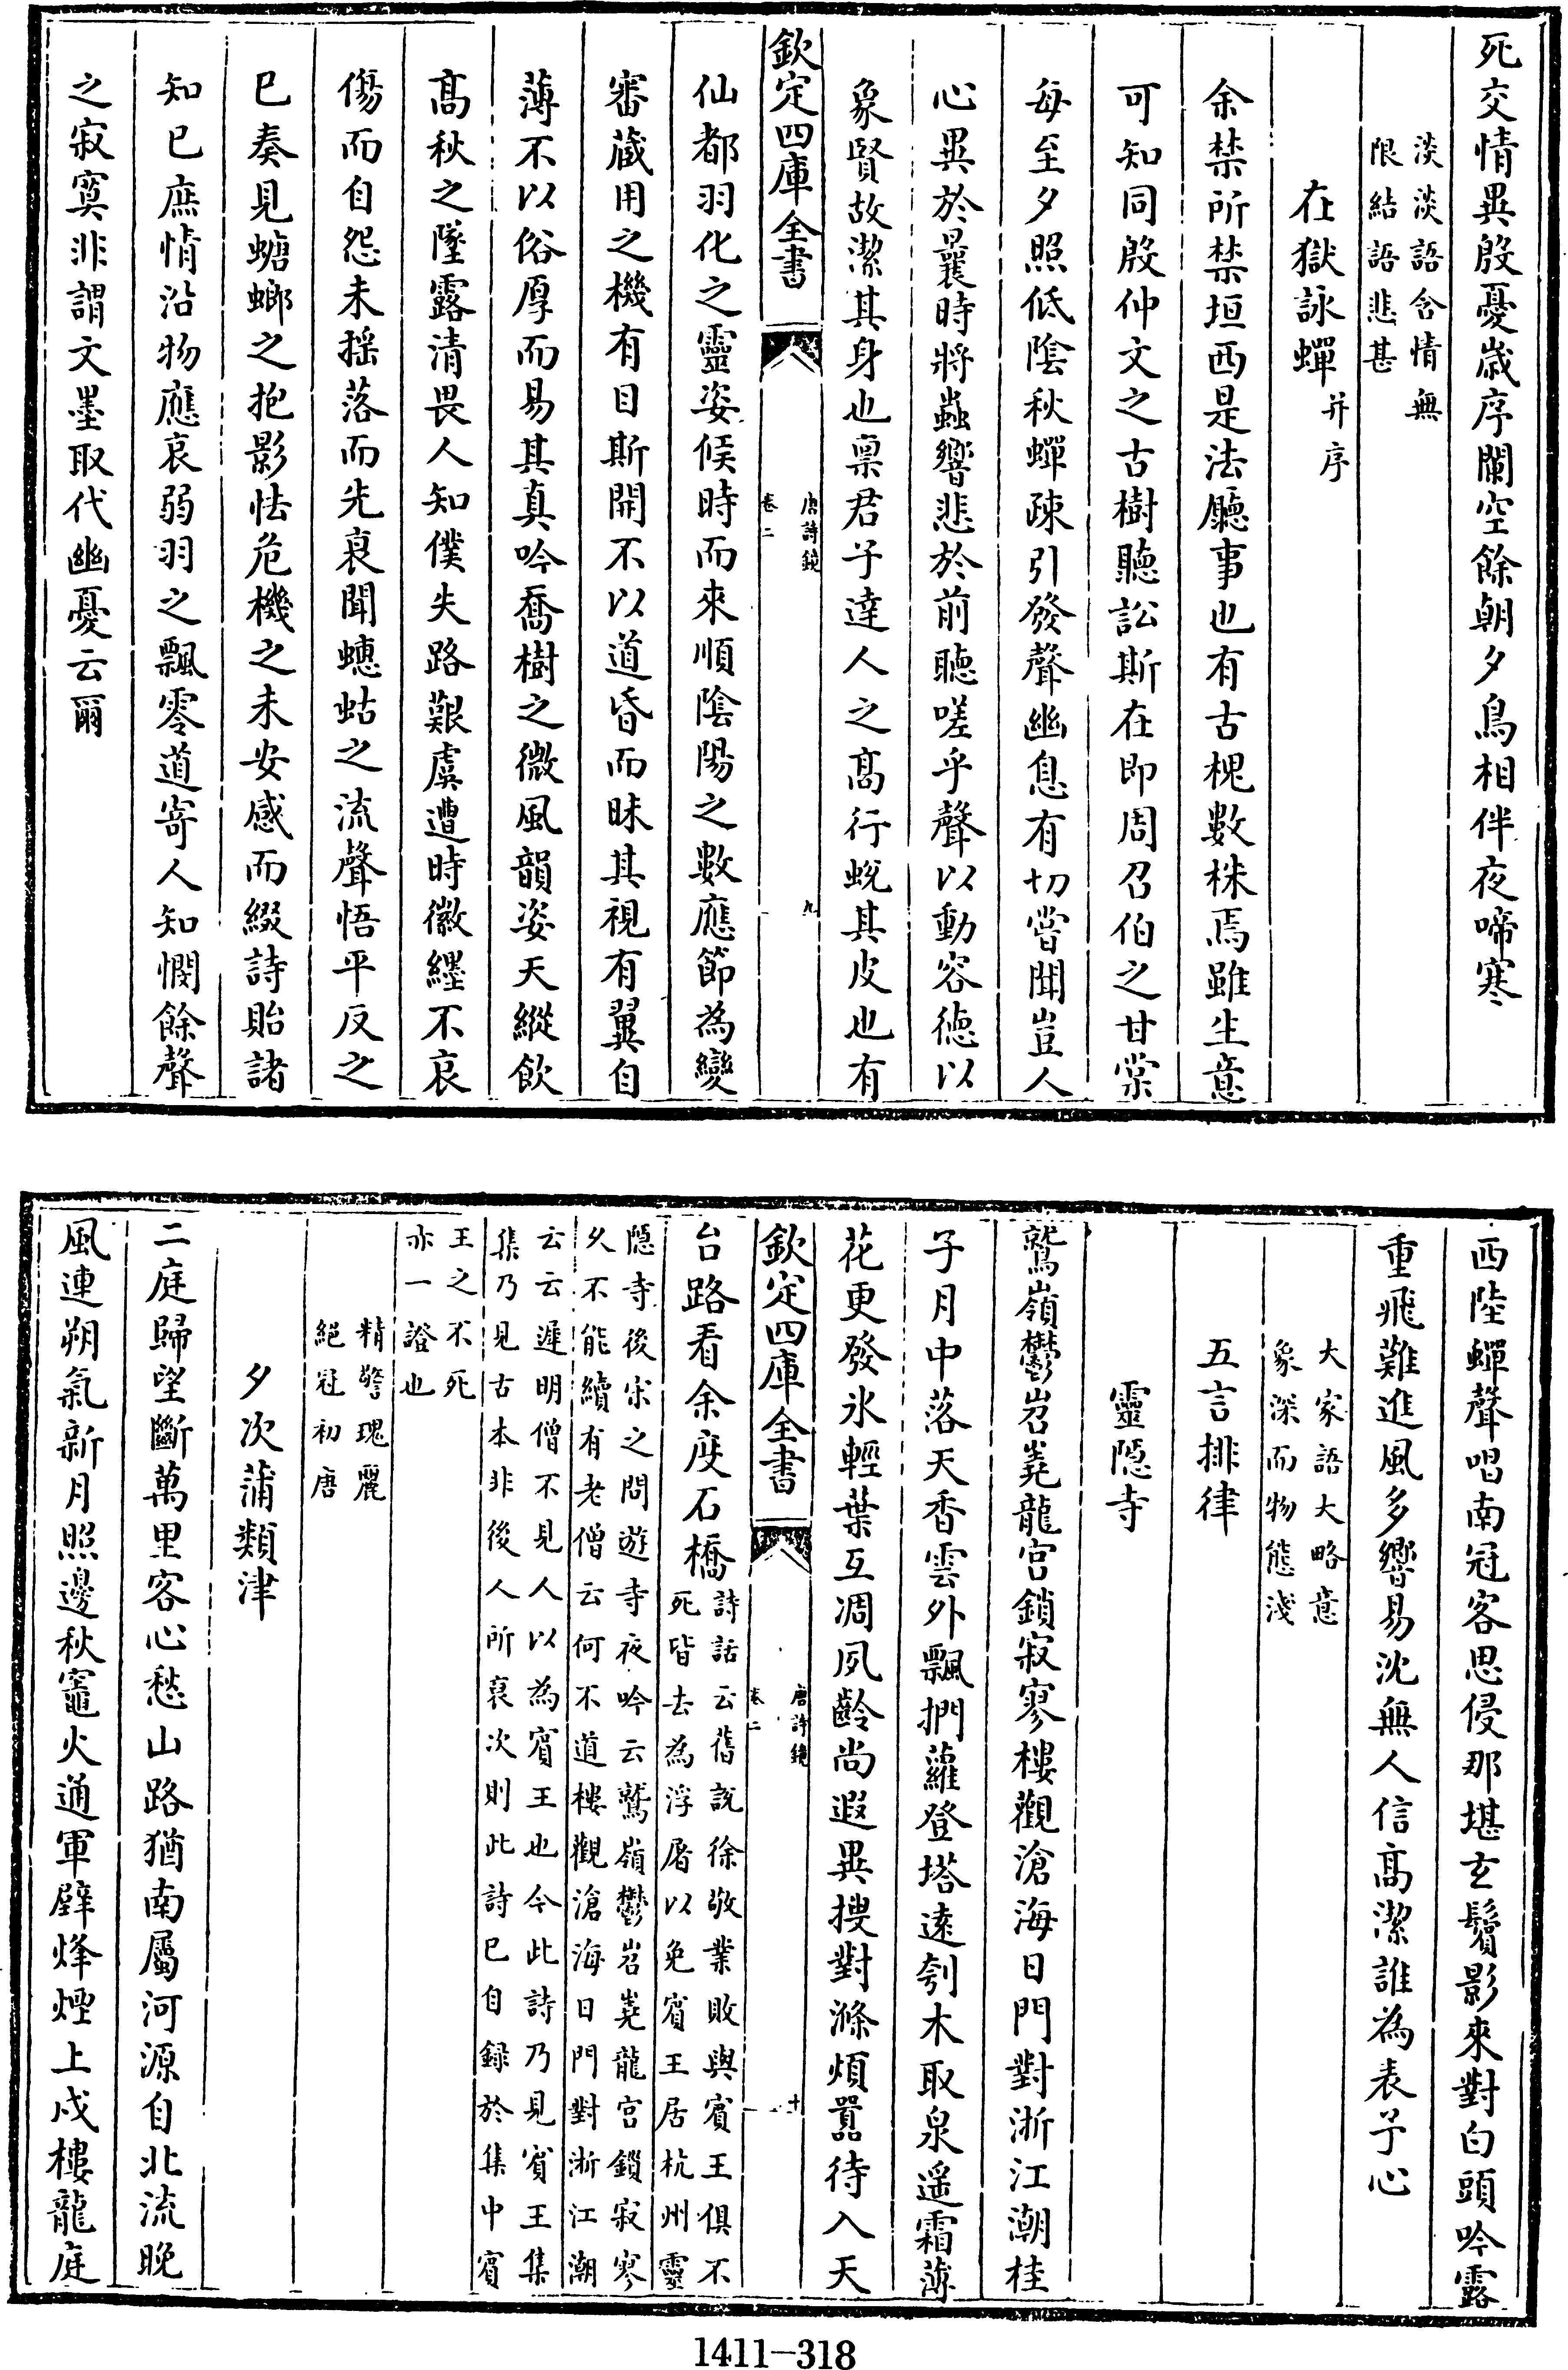 死交情異殷憂歲序闌空餘朝夕鳥相伴夜啼寒
淡淡語含情無
限結語悲甚
在獄詠蟬并序
余禁所禁垣西是法廳事也有古槐數株焉雖生意
可知同殷仲文之古樹聽訟斯在即周召伯之甘棠
每至夕照低陰秋蟬疎引發聲幽息有切嘗聞豈人
心異於曩時將蟲響悲於前聽嗟乎聲以動容徳以
象賢故潔其身也稟君子達人之髙行蛻其皮也有
欽定四庫全書
唐詩鏡
卷二
九
仙都羽化之靈姿候時而來順陰陽之數應節為變
審蔵用之機有目斯開不以道昏而昧其視有翼自
薄不以俗厚而易其真吟喬樹之微風韻姿天縱飲
髙秋之墜露清畏人知僕失路艱虞遭時徽纆不哀
傷而自怨未揺落而先衰聞蟪蛄之流聲悟平反之
已奏見螗螂之抱影怯危機之未安感而綴詩貽諸
知已庶情沿物應哀弱羽之飄零道寄人知憫餘聲
之寂寞非謂文墨取代幽憂云爾
西陸蟬聲唱南冠客思侵那堪玄鬢影來對白頭吟露
重飛難進風多響易沈無人信髙潔誰為表予心
大家語大略意
象深而物態淺
五言排律
靈隠寺
鷲嶺鬱岧嶤龍宫鎖寂寥樓觀滄海日門對浙江潮桂
子月中落天香雲外飄捫蘿登塔逺刳木取泉遥霜薄
花更發氷輕葉互凋夙齡尚遐異搜對滌煩囂待入天
欽定四庫全書
唐詩鏡
卷二
十
台路看余度石橋
詩話云舊説徐敬業敗與賓王俱不
死皆去為浮屠以免賓王居杭州靈
隠寺後宋之問遊寺夜吟云鷲嶺鬱岧嶤龍宫鎖寂寥
乆不能續有老僧云何不道樓觀滄海日門對浙江潮
云云遲明僧不見人以為賓王也今此詩乃見賓王集
集乃見古本非後人所裒次則此詩已自録於集中賓
王之不死
亦一證也
精警瑰麗
絕冠初唐
夕次蒲類津
二庭歸望斷萬里客心愁山路猶南屬河源自北流晚
風連朔氣新月照邊秋竈火通軍壁烽煙上戍樓龍庭
1411—318